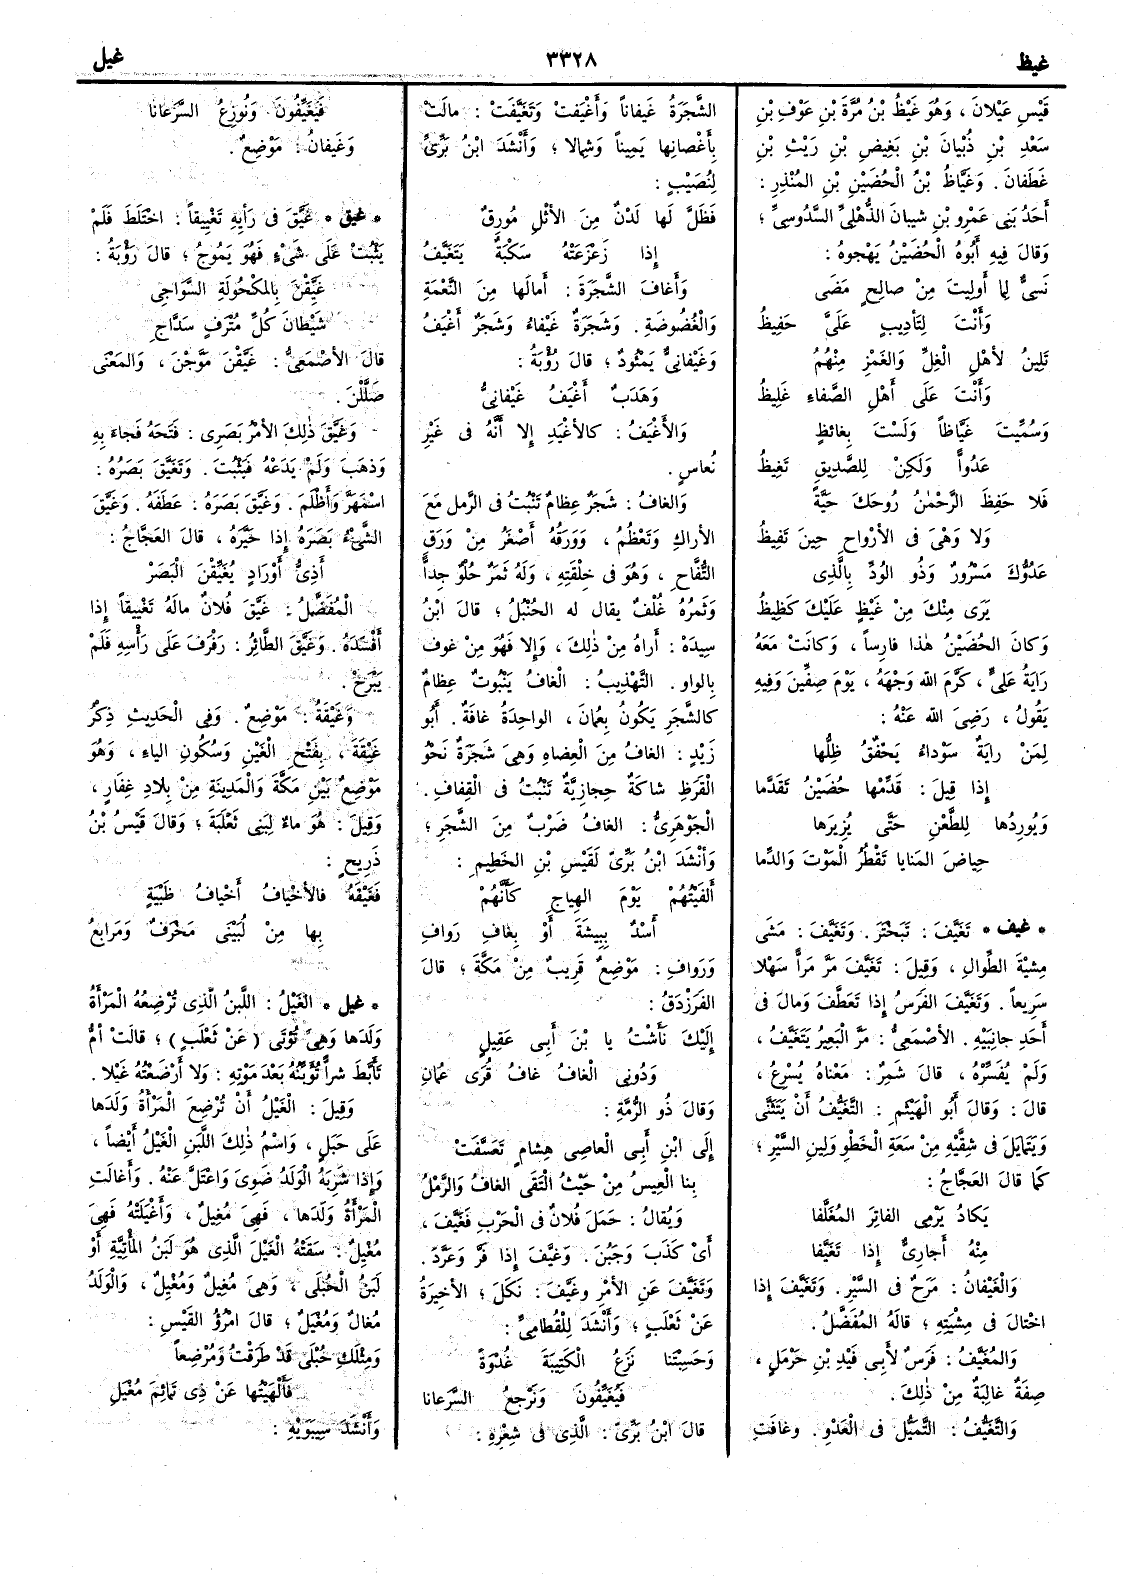 غيظ
٣٣٢٨
غيل
قَيْسِ عَيْلانَ ، وَهُوَ غَيْظُ بْنُ مُرَّةَ بْنِ عَوْفِ بْنِ
سَعْدِ بْنِ ذُبْيانَ بْنِ بَغِيضِ بْنِ رَيْثِ بْنِ
غَطَفانَ . وَغَيَّاظُ بْنُ الْحُضَيْنِ بْنِ المُنْذِرِ :
أَحَدُ بَنِى عَمْرِو بْنِ شَيْبانَ الذُّهْلِىِّ السَّدُوسِىِّ ؛
وَقالَ فِيهِ أَبُوهُ الْحُضَيْنُ يَهْجُوهُ :
نَسىٌّ لِما أُولِيتَ مِنْ صالِحٍ مَضَى
وَأَنْتَ لِتَأْدِيبٍ عَلَىَّ حَفِيظُ
تَلِينُ لأَهْلِ الْغِلِّ وَالْغَمْزِ مِنْهُمُ
وَأَنْتَ عَلَى أَهْلِ الصَّفاءِ غَلِيظُ
وَسُمِّيتَ غَيَّاظاً وَلَسْتَ بِغائظٍ
عَدُوّاً وَلَكِنْ لِلصَّدِيقِ تَغِيظُ
فَلا حَفِظَ الرَّحْمٰنُ رُوحَكَ حَيَّةً
وَلا وَهْىَ فى الأَرْواحِ حِينَ تَفِيظُ
عَدُوُّكَ مَسْرُورٌ وَذُو الوُدِّ بِالَّذِى
يَرَى مِنْكَ مِنْ غَيْظٍ عَلَيْكَ كَظِيظُ
وَكانَ الحُضَيْنُ هٰذا فارِساً ، وَكانَتْ مَعَهُ
رَايَةُ عَلِىٍّ ، كَرَّمَ الله وَجْهَهُ ، يَوْمَ صِفِّينَ وَفِيهِ
يَقُولُ ، رَضِىَ الله عَنْهُ :
لِمَنْ رايَةٌ سَوْداءُ يَخْفُقُ ظِلُّها
إِذا قِيلَ : قَدِّمْها حُضَيْنُ تَقَدَّما
وَيُورِدُها لِلطَّعْنِ حَتَّى يُزِيرَها
حِياضَ المَنايا تَقْطُرُ الْمَوْتَ وَالدَّما
• غيف • تَغَيَّفَ : تَبَخْتَرَ . وَتَغَيَّفَ : مَشَى
مِشْيَةَ الطِّوالِ ، وَقِيلَ : تَغَيَّفَ مَرَّ مَرّاً سَهْلا
سَرِيعاً . وَتَغَيَّفَ الفَرَسُ إِذا تَعَطَّفَ وَمالَ فى
أَحَدِ جانِبَيْهِ . الأَصْمَعِىُّ : مَرَّ الْبَعِيرُ يَتَغَيَّفُ ،
وَلَمْ يُفَسِّرْهُ ، قالَ شَمِرٌ : مَعْناهُ يُسْرِعُ ،
قالَ : وَقالَ أَبُو الْهَيْثَمِ : التَّغَيُّفُ أَنْ يَتَثَنَّى
وَيَتَمايَلَ فى شِقَّيْهِ مِنْ سَعَةِ الْخَطْوِ وَلِينِ السَّيْرِ ؛
كَما قالَ العَجَّاجُ :
يَكادُ يَرْمِى الفاتِرَ المُغَلَّفا
مِنْهُ أَجارِىٌّ إِذا تَغَيَّفا
وَالْغَيْفانُ : مَرَحٌ فى السَّيْرِ . وَتَغَيَّفَ إِذا
اخْتالَ فى مِشْيَتِهِ ؛ قالَهُ المُفَضَّلُ .
وَالمُغَيَّفُ : فَرَسٌ لأَبِى فَيْدِ بْنِ حَرْمَلٍ ،
صِفَةٌ غالِبَةٌ مِنْ ذٰلِكَ .
وَالتَّغَيُّفُ : التَّمَيُّل فى الْعَدْوِ . وَغافَتِ
الشَّجَرَةُ غَيفاناً وَأَغْيَفتْ وَتَغَيَّفَتْ : مالَتْ
بِأَغْصانِها يَمِيناً وَشِمالا ؛ وَأَنْشَدَ ابْنُ بَرِّىٍّ
لِنُصَيْبٍ :
فَظَلَّ لَها لَدْنٌ مِنَ الأَثْلِ مُورِقٌ
إِذا زَعْزَعَتْهُ سَكْبَةٌ يَتَغَيَّفُ
وَأَغافَ الشَّجَرَةَ : أَمالَها مِنَ النَّعْمَةِ
وَالْغُضُوضَةِ . وَشَجَرَةٌ غَيْفاءُ وَشَجَرٌ أَغْيَفُ
وَغَيْفانِىٌّ يَمْئُودٌ ؛ قالَ رُؤْبَةُ :
وَهَدَبٌ أَغْيَفُ غَيْفانِىُّ
وَالأَغْيَفُ : كالأَغْيَدِ إِلا أَنَّهُ فى غَيْرِ
نُعاسٍ .
وَالغافُ : شَجَرٌ عِظامٌ تَنْبُتُ فى الرَّمل مَعَ
الأَراكِ وَتَعْظُمُ ، وَوَرَقُهُ أَصْغَرُ مِنْ وَرَقِ
التُّفَّاحِ ، وَهُوَ فى خِلْقَتِهِ ، وَلَهُ ثَمَرٌ حُلْوٌ جِداًّ
وَثَمَرُهُ غُلْفٌ يقال له الحُنْبُلُ ؛ قالَ ابْنُ
سِيدَهْ : أَراهُ مِنْ ذٰلِكَ ، وَإِلا فَهُوَ مِنْ غوف
بِالواو . التَّهْذِيبُ : الْغافُ يَنْبُوتٌ عِظامٌ
كالشَّجَرِ يَكُونُ بِعُمانَ ، الواحِدَةُ غافَةٌ . أَبُو
زَيْدٍ : الغافُ مِنَ العِضاهِ وَهِىَ شَجَرَةٌ نَحْوُ
الْقَرَظِ شاكَةٌ حِجازِيَّةٌ تَنْبُتُ فى الْقِفافِ .
الْجَوْهَرِىُّ : الغافُ ضَرْبٌ مِنَ الشَّجَرِ ؛
وَأَنْشَدَ ابْنُ بَرِّىٍّ لَقَيْسِ بْنِ الخَطِيمِ :
أَلفَيْتُهُمْ يَوْمَ الهِياجِ كَأَنَّهُمْ
أُسْدٌ بِبِيشَةَ أَوْ بِغافِ رَوافِ
وَرَوافِ : مَوْضِعٌ قَرِيبٌ مِنْ مَكَّةَ ؛ قالَ
الفَرَزْدَقُ :
إِلَيْكَ نَأَشْتُ يا بْنَ أَبِى عَقِيلٍ
وَدُونِى الْغافُ غافُ قُرَى عُمانِ
وَقالَ ذُو الرُّمَّةِ :
إِلَى ابْنِ أَبِى العاصِى هِشامٍ تَعَسَّفَتْ
بِنا العِيسُ مِنْ حَيْثُ الْتَقَى الغافُ وَالرَّمْلُ
وَيُقالُ : حَمَلَ فُلانٌ فى الْحَرْبِ فَغَيَّفَ ،
أَىْ كَذَبَ وَجَبُنَ . وَغَيَّفَ إِذا فَرَّ وَعَرَّدَ .
وَتَغَيَّفَ عَنِ الأَمْرِ وَغَيَّفَ : نَكَلَ ؛ الأَخِيرَةُ
عَنْ ثَعْلَبٍ ؛ وَأَنْشَدَ لِلْقُطامِىِّ :
وَحَسِبْتَنا نَزَعُ الْكَتِيبَةَ غُدْوَةً
فَيُغَيِّفُونَ وَنَرْجِعُ السَّرَعانا
قالَ ابْنُ بَرِّىٍّ : الَّذِى فى شِعْرِهِ :
فَيُغَيِّفُونَ وَنُوزِعُ السَّرَعانا
وَغَيفانُ : مَوْضِعٌ .
• غيق • غَيَّقَ فى رَأيِهِ تَغْيِيقاً : اخْتَلَطَ فَلَمْ
يَثْبُتْ عَلَى شَىْءٍ فَهُوَ يَمُوجُ ؛ قالَ رُؤْبَةُ :
غَيَّقْنَ بِالمَكْحُولَةِ السَّواجِى
شَيْطانَ كُلِّ مُتْرَفٍ سَدَّاجِ
قالَ الأَصْمَعِىُّ : غَيَّقْنَ مَوَّجْنَ ، وَالمَعْنَى
ضَلَّلْنَ .
وَغَيَّقَ ذٰلِكَ الأَمْرُ بَصَرِى : فَتَحَهُ فَجاءَ بِهِ
وَذَهَبَ وَلَمْ يَدَعْهُ فَيَثْبُتَ . وَتَغَيَّقَ بَصَرُهُ :
اسْمَهَرَّ وَأَظْلَمَ . وَغَيَّقَ بَصَرَهُ : عَطَفَهُ . وَغَيَّقَ
الشَّىْءُ بَصَرَهُ إِذا حَيَّرَهُ ، قالَ العَجَّاجُ :
أَذِىُّ أَوْرادٍ يُغَيِّقْنَ الْبَصَرْ
الْمُفَضَّلُ : غَيَّقَ فُلانٌ مالَهُ تَغْيِيقاً إِذا
أَفْسَدَهُ . وَغَيَّقَ الطَّائِرُ : رَفْرَفَ عَلَى رَأْسِهِ فَلَمْ
يَبْرَحْ .
وَغَيْقَةُ : مَوْضِعٌ . وَفِى الْحَدِيثِ ذِكْرُ
غَيْقَةَ ، بِفَتْحِ الْغَيْنِ وَسُكُونِ الياءِ ، وَهُوَ
مَوْضِعٌ بَيْنَ مَكَّةَ وَالْمَدِينَةِ مِنْ بِلادِ غِفارٍ ،
وَقِيلَ : هُوَ ماءٌ لِبَنِى ثَعْلَبَةَ ؛ وَقالَ قَيْسُ بْنُ
ذَرِيحٍ :
فَغَيْقَةُ فَالأَخْيافُ أَخْيافُ ظَبْيَةٍ
بِها مِنْ لُبَيْنَى مَخْرَفٌ وَمَرابِعُ
• غيل • الغَيْلُ : اللَّبَنُ الَّذِى تُرْضِعُهُ الْمَرْأَةُ
وَلَدَها وَهِىَ تُؤْتَى ( عَنْ ثَعْلَبٍ ) ؛ قالَتْ أُمُّ
تَأَبَّطَ شراً تُؤَبِّنُهُ بَعْدَ مَوْتِهِ : وَلا أَرْضَعْتُهُ غَيْلا .
وَقِيلَ : الْغَيْلُ أَنْ تُرْضِعَ الْمَرْأَةُ وَلَدَها
عَلَى حَبَلٍ ، وَاسْمُ ذٰلِكَ اللَّبَنِ الْغَيْلُ أَيْضاً ،
وَإِذا شَرِبَهُ الْوَلَدُ ضَوِىَ وَاعْتَلَّ عَنْهُ . وَأَغالَتِ
الْمَرْأَةُ وَلَدَها ، فَهِىَ مُغِيلٌ ، وَأَغْيَلَتْهُ فَهِىَ
مُغْيِلٌ : سَقَتْهُ الْغَيْلَ الَّذِى هُوَ لَبَنُ الْمَأْتِيَّةِ أَوْ
لَبَنُ الْحُبْلَى ، وَهِىَ مُغِيلٌ وَمُغْيِلٌ ، وَالْوَلَدُ
مُغالٌ وَمُغْيَلٌ ؛ قالَ امْرُؤُ القَيْسِ :
وَمِثْلَكِ حُبْلَى قَدْ طَرَقْتُ وَمُرْضِعاً
فَأَلْهَيْتُها عَنْ ذِى تَمائِمَ مُغْيَلِ
وَأَنْشَدَ سِيبَوَيْهِ :